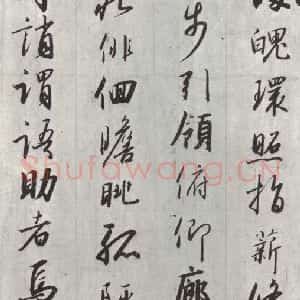 魄環照指薪修
步引領俯仰廊
俳佪瞻眺孤陋
誚謂語助者焉
Shufawang.CN